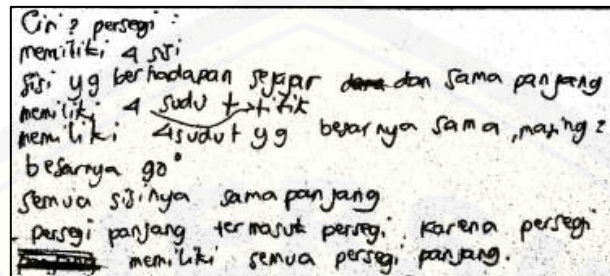 Ciri 2 persegi :
memiliki 4 sisi
sisi yg berhadapan sejajar dan sama panjang
memiliki 4 sudut titik
memiliki 4 sudut yg besarnya sama, masing 2
besarnya 90°
semua sisinya sama panjang
persegi panjang termasuk persegi karena persegi
memiliki semua persegi panjang.